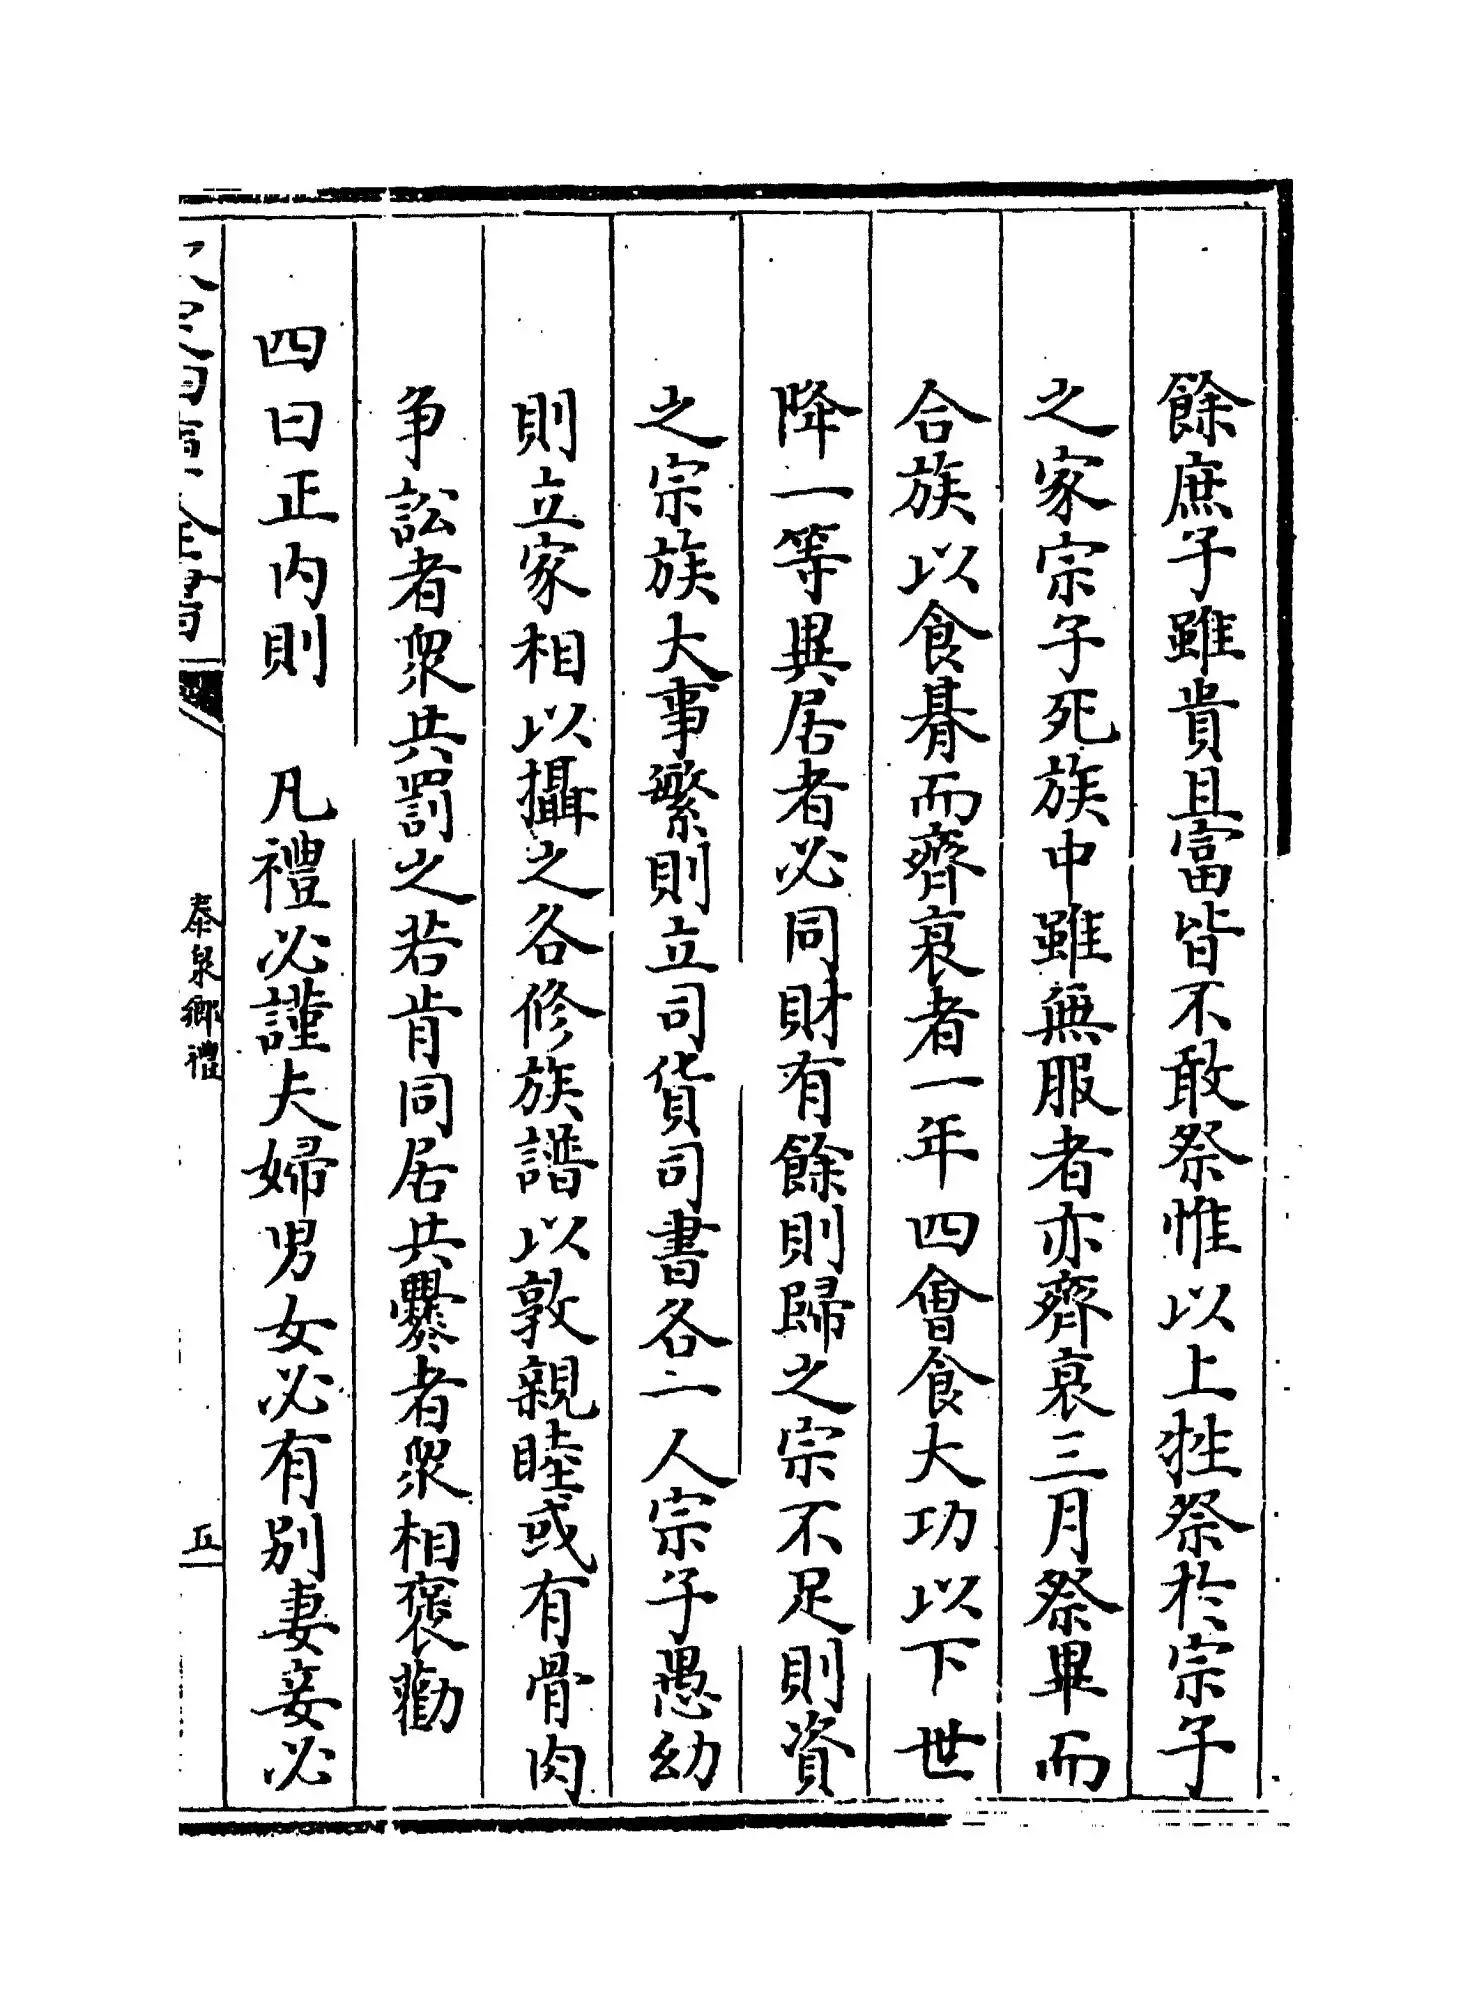 餘庶子雖貴且富皆不敢祭惟以上牲祭於宗子
之家宗子死族中雖無服者亦齊衰三月祭畢而
合族以食朞而齊衰者一年四會食大功以下世
降一等異居者必同財有餘則歸之宗不足則資
之宗族大事繁則立司貨司書各一人宗子愚幼
則立家相以攝之各修族譜以敦親睦或有骨肉
争訟者衆共罰之若肯同居共爨者衆相褒勸
四曰正内則　凡禮必謹夫婦男女必有别妻妾必
泰泉鄉禮
五